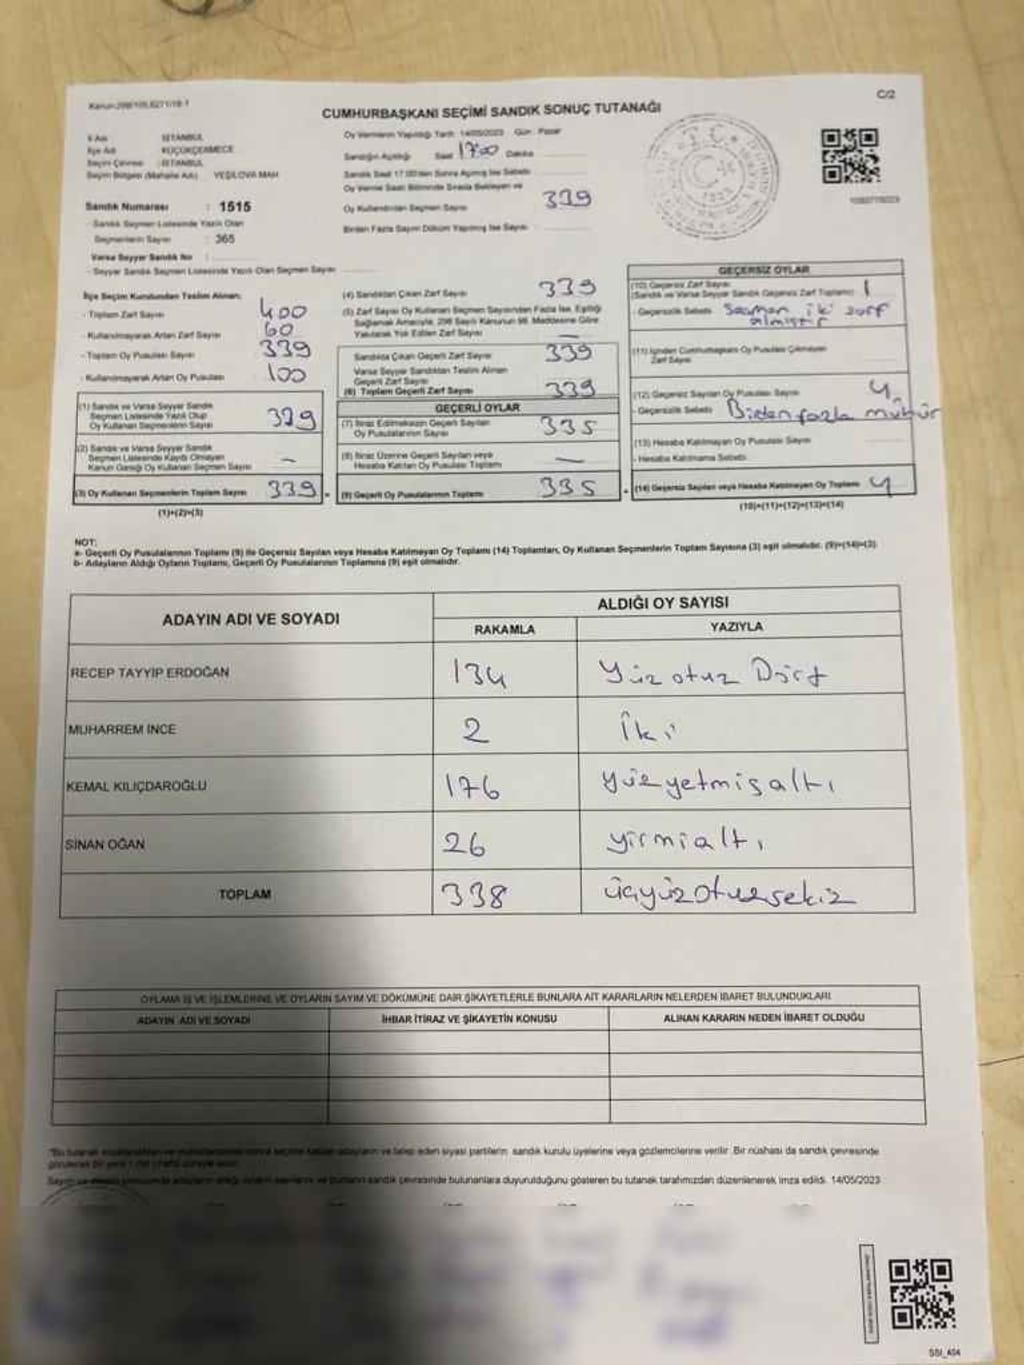 Kanun:298/105,6271/19-1
C/2
CUMHURBAŞKANI SEÇİMİ SANDIK SONUÇ TUTANAĞI
İl Adı : İSTANBUL
İlçe Adı : KÜÇÜKÇEKMECE
Seçim Çevresi : İSTANBUL
Seçim Bölgesi (Mahalle Adı) : YEŞİLOVA MAH
Sandık Numarası : 1515
- Sandık Seçmen Listesinde Yazılı Olan
Seçmenlerin Sayısı : 365
Varsa Seyyar Sandık No :
- Seyyar Sandık Seçmen Listesinde Yazılı Olan Seçmen Sayısı
Oy Vermenin Yapıldığı Tarih: 14/05/2023 Gün : Pazar
Sandığın Açıldığı Saat 17:00 Dakika
Sandık Saat 17:00'den Sonra Açılmış İse Sebebi
Oy Verme Saati Bitiminde Sırada Bekleyen ve
Oy Kullandırılan Seçmen Sayısı 339
Birden Fazla Sayım Döküm Yapılmış İse Sayısı
T.C.
İlçe Seçim Kurulundan Teslim Alınan;
- Toplam Zarf Sayısı 400
- Kullanılmayarak Artan Zarf Sayısı 60
- Toplam Oy Pusulası Sayısı 339
- Kullanılmayarak Artan Oy Pusulası 100
(1) Sandık ve Varsa Seyyar Sandık
Seçmen Listesinde Yazılı Olup
Oy Kullanan Seçmenlerin Sayısı 339
(2) Sandık ve Varsa Seyyar Sandık
Seçmen Listesinde Kayıtlı Olmayan
Kanun Gereği Oy Kullanan Seçmen Sayısı –
(3) Oy Kullanan Seçmenlerin Toplam Sayısı 339
(1)+(2)=(3)
(4) Sandıktan Çıkan Zarf Sayısı 339
(5) Zarf Sayısı Oy Kullanan Seçmen Sayısından Fazla İse, Eşitliği
Sağlamak Amacıyla, 298 Sayılı Kanunun 98. Maddesine Göre
Yakılarak Yok Edilen Zarf Sayısı —
Sandıkta Çıkan Geçerli Zarf Sayısı 339
Varsa Seyyar Sandıktan Teslim Alınan
Geçerli Zarf Sayısı
(6) Toplam Geçerli Zarf Sayısı 339
GEÇERLİ OYLAR
(7) İtiraz Edilmeksizin Geçerli Sayılan
Oy Pusulalarının Sayısı 335
(8) İtiraz Üzerine Geçerli Sayılan veya
Hesaba Katılan Oy Pusulası Toplamı —
(9) Geçerli Oy Pusulalarının Toplamı 335
GEÇERSİZ OYLAR
(10) Geçersiz Zarf Sayısı
(Sandık ve Varsa Seyyar Sandık Geçersiz Zarf Toplamı) 1
- Geçersizlik Sebebi Seçmen iki zarf
almıştır
(11) İçinden Cumhurbaşkanı Oy Pusulası Çıkmayan
Zarf Sayısı
(12) Geçersiz Sayılan Oy Pusulası Sayısı 4
- Geçersizlik Sebebi Birden fazla mühür
(13) Hesaba Katılmayan Oy Pusulası Sayısı
- Hesaba Katılmama Sebebi
(14) Geçersiz Sayılan veya Hesaba Katılmayan Oy Toplamı 4
(10)+(11)+(12)+(13)=(14)
NOT:
a- Geçerli Oy Pusulalarının Toplamı (9) ile Geçersiz Sayılan veya Hesaba Katılmayan Oy Toplamı (14) Toplamları, Oy Kullanan Seçmenlerin Toplam Sayısına (3) eşit olmalıdır. (9)+(14)=(3)
b- Adayların Aldığı Oyların Toplamı, Geçerli Oy Pusulalarının Toplamına (9) eşit olmalıdır.
ADAYIN ADI VE SOYADI
ALDIĞI OY SAYISI
RAKAMLA YAZIYLA
RECEP TAYYİP ERDOĞAN 134 Yüz otuz Dört
MUHARREM İNCE 2 İki
KEMAL KILIÇDAROĞLU 176 yüz yetmiş altı
SİNAN OĞAN 26 yirmi altı
TOPLAM 338 üçyüz otuz sekiz
OYLAMA İŞ VE İŞLEMLERİNE VE OYLARIN SAYIM VE DÖKÜMÜNE DAİR ŞİKAYETLERLE BUNLARA AİT KARARLARIN NELERDEN İBARET BULUNDUKLARI
ADAYIN ADI VE SOYADI İHBAR İTİRAZ VE ŞİKAYETİN KONUSU ALINAN KARARIN NEDEN İBARET OLDUĞU
"Bu tutanak
adayların ve talep eden siyasi partilerin sandık kurulu üyelerine veya gözlemcilerine verilir. Bir nüshası da sandık çevresinde
sandık çevresinde bulunanlara duyurulduğunu gösteren bu tutanak tarafımızdan düzenlenerek imza edildi. 14/05/2023
SSI_404